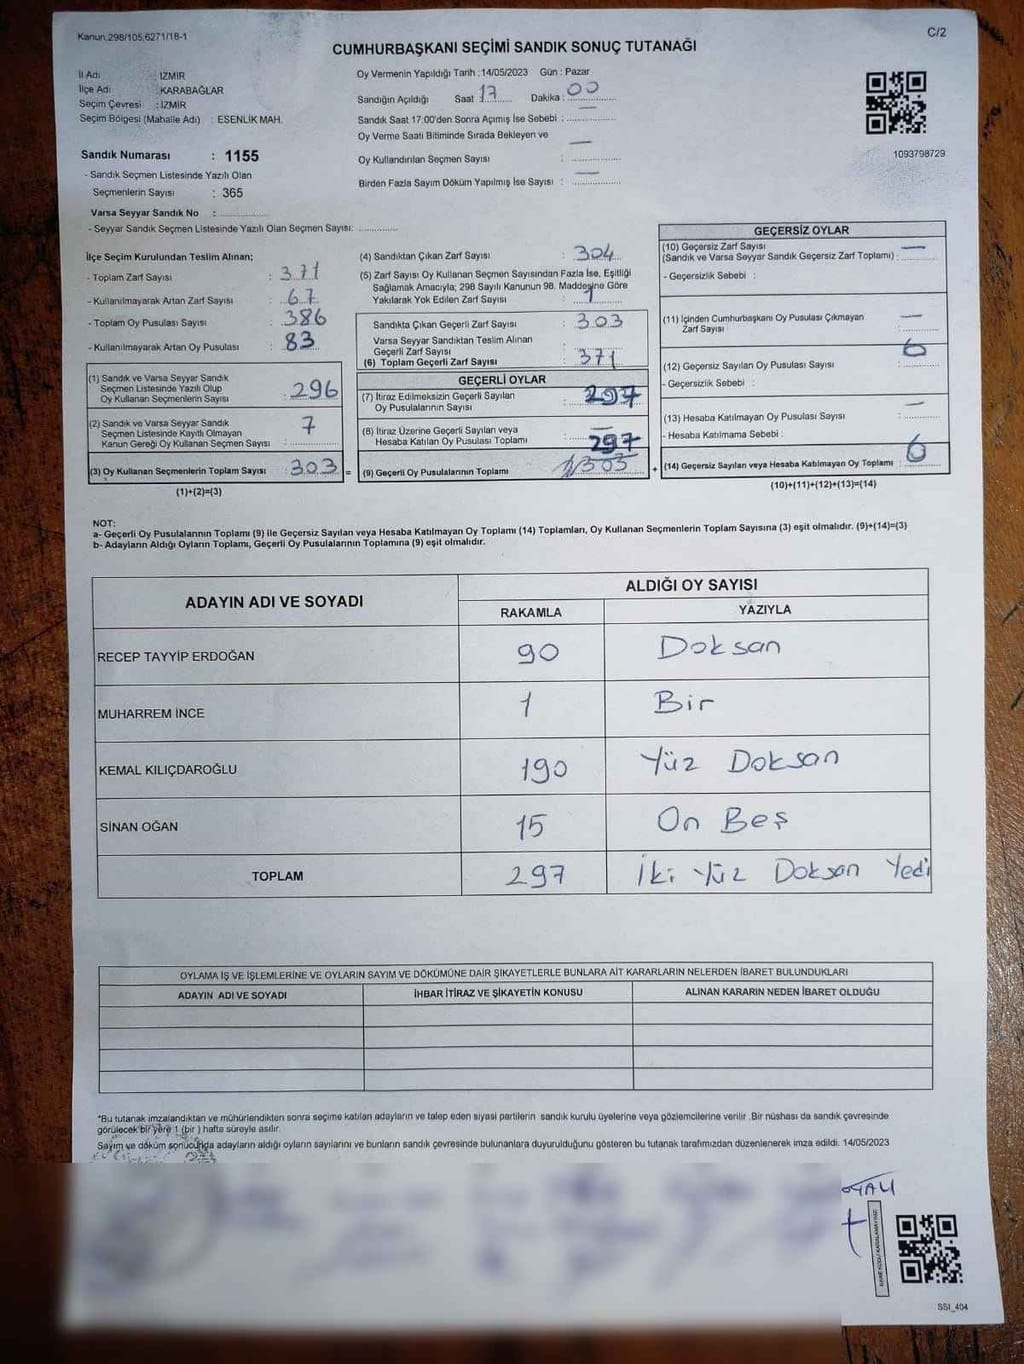 Kanun.298/105,6271/18-1
C/2
CUMHURBAŞKANI SEÇİMİ SANDIK SONUÇ TUTANAĞI
İl Adı : İZMİR
İlçe Adı : KARABAĞLAR
Seçim Çevresi : İZMİR
Seçim Bölgesi (Mahalle Adı) : ESENLİK MAH.
Sandık Numarası : 1155
- Sandık Seçmen Listesinde Yazılı Olan
Seçmenlerin Sayısı : 365
Varsa Seyyar Sandık No :
- Seyyar Sandık Seçmen Listesinde Yazılı Olan Seçmen Sayısı:
Oy Vermenin Yapıldığı Tarih :14/05/2023 Gün : Pazar
Sandığın Açıldığı Saat 17 Dakika : 00
Sandık Saat 17:00'den Sonra Açımış İse Sebebi :
Oy Verme Saati Bitiminde Sırada Bekleyen ve
Oy Kullandırılan Seçmen Sayısı : —
Birden Fazla Sayım Döküm Yapılmış İse Sayısı : —
1093798729
İlçe Seçim Kurulundan Teslim Alınan;
- Toplam Zarf Sayısı : 371
- Kullanılmayarak Artan Zarf Sayısı : 67
- Toplam Oy Pusulası Sayısı : 386
- Kullanılmayarak Artan Oy Pusulası : 83
(1) Sandık ve Varsa Seyyar Sandık
Seçmen Listesinde Yazılı Olup
Oy Kullanan Seçmenlerin Sayısı : 296
(2) Sandık ve Varsa Seyyar Sandık
Seçmen Listesinde Kayıtlı Olmayan
Kanun Gereği Oy Kullanan Seçmen Sayısı : 7
(3) Oy Kullanan Seçmenlerin Toplam Sayısı : 303 =
(1)+(2)=(3)
(4) Sandıktan Çıkan Zarf Sayısı : 304
(5) Zarf Sayısı Oy Kullanan Seçmen Sayısından Fazla İse, Eşitliği
Sağlamak Amacıyla; 298 Sayılı Kanunun 98. Maddesine Göre
Yakılarak Yok Edilen Zarf Sayısı : 1
Sandıkta Çıkan Geçerli Zarf Sayısı : 303
Varsa Seyyar Sandıktan Teslim Alınan
Geçerli Zarf Sayısı :
(6) Toplam Geçerli Zarf Sayısı : 371
GEÇERLİ OYLAR
(7) İtiraz Edilmeksizin Geçerli Sayılan
Oy Pusulalarının Sayısı : 297
(8) İtiraz Üzerine Geçerli Sayılan veya
Hesaba Katılan Oy Pusulası Toplamı : —
297
(9) Geçerli Oy Pusulalarının Toplamı 303 +
GEÇERSİZ OYLAR
(10) Geçersiz Zarf Sayısı
(Sandık ve Varsa Seyyar Sandık Geçersiz Zarf Toplamı) : —
- Geçersizlik Sebebi :
(11) İçinden Cumhurbaşkanı Oy Pusulası Çıkmayan
Zarf Sayısı : —
(12) Geçersiz Sayılan Oy Pusulası Sayısı : 6
- Geçersizlik Sebebi :
(13) Hesaba Katılmayan Oy Pusulası Sayısı : —
- Hesaba Katılmama Sebebi :
(14) Geçersiz Sayılan veya Hesaba Katılmayan Oy Toplamı : 6
(10)+(11)+(12)+(13)=(14)
NOT:
a- Geçerli Oy Pusulalarının Toplamı (9) ile Geçersiz Sayılan veya Hesaba Katılmayan Oy Toplamı (14) Toplamları, Oy Kullanan Seçmenlerin Toplam Sayısına (3) eşit olmalıdır. (9)+(14)=(3)
b- Adayların Aldığı Oyların Toplamı, Geçerli Oy Pusulalarının Toplamına (9) eşit olmalıdır.
ADAYIN ADI VE SOYADI ALDIĞI OY SAYISI
RAKAMLA YAZIYLA
RECEP TAYYİP ERDOĞAN 90 Doksan
MUHARREM İNCE 1 Bir
KEMAL KILIÇDAROĞLU 190 Yüz Doksan
SİNAN OĞAN 15 On Beş
TOPLAM 297 İki Yüz Doksan Yedi
OYLAMA İŞ VE İŞLEMLERİNE VE OYLARIN SAYIM VE DÖKÜMÜNE DAİR ŞİKAYETLERLE BUNLARA AİT KARARLARIN NELERDEN İBARET BULUNDUKLARI
ADAYIN ADI VE SOYADI İHBAR İTİRAZ VE ŞİKAYETİN KONUSU ALINAN KARARIN NEDEN İBARET OLDUĞU
*Bu tutanak imzalandıktan ve mühürlendikten sonra seçime katılan adayların ve talep eden siyasi partilerin sandık kurulu üyelerine veya gözlemcilerine verilir .Bir nüshası da sandık çevresinde
görülecek bir yere 1 (bir ) hafta süreyle asılır.
Sayım ve döküm sonucunda adayların aldığı oyların sayılarını ve bunların sandık çevresinde bulunanlara duyurulduğunu gösteren bu tutanak tarafımızdan düzenlenerek imza edildi. 14/05/2023
SSI_404